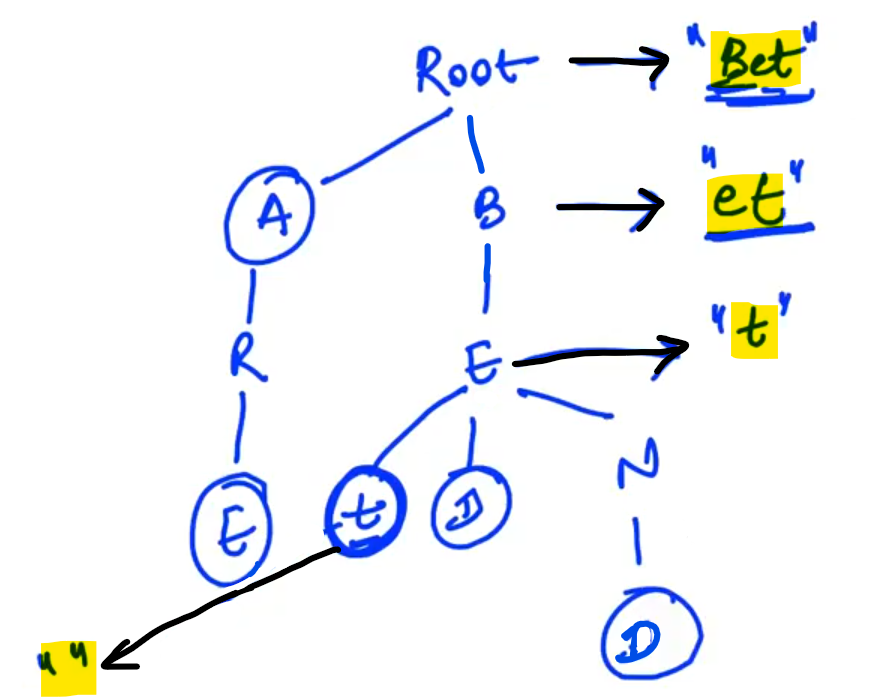 Root "Bet"
A B "et"
R E "t"
E t D N
" " D